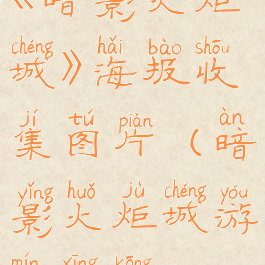 《暗影火炬
chéng hǎi bào shōu
城》海报收
jí tú piàn àn
集图片（暗
yǐng huǒ jù chéng yóu
影火炬城游
mín xīng kōng